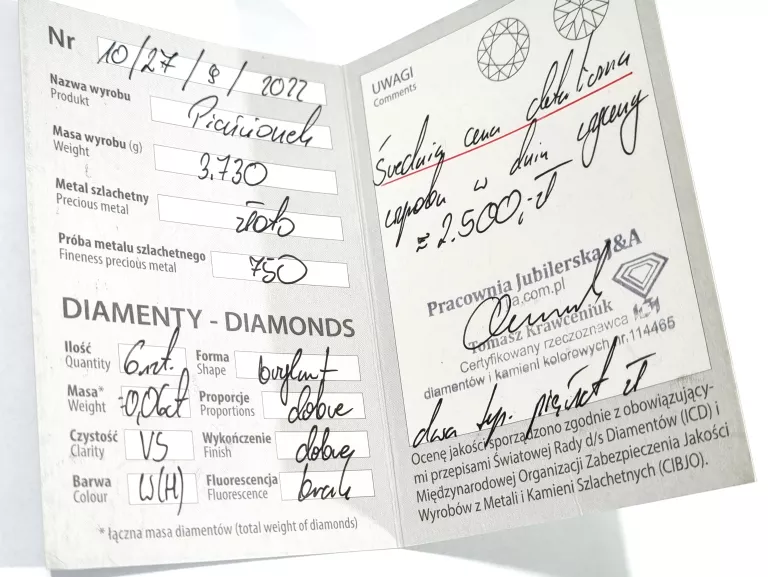 Nr 10/27/9/2022
Nazwa wyrobu
Produkt
Pierścionek
Masa wyrobu (g)
Weight
3.730
Metal szlachetny
Precious metal
złoto
Próba metalu szlachetnego
Fineness precious metal
750
DIAMENTY - DIAMONDS
Ilość
Quantity
6 szt.
Forma
Shape
brylant
Masa*
Weight
0,06ct
Proporcje
Proportions
dobre
Czystość
Clarity
VS
Wykończenie
Finish
dobre
Barwa
Colour
W(H)
Fluorescencja
Fluorescence
brak
* łączna masa diamentów (total weight of diamonds)
UWAGI
Comments
Średnia cena detaliczna
wyrobu w dniu wyceny
≈ 2.500,- zł
Pracownia Jubilerska J&A
a.com.pl
Tomasz Krawceniuk
Certyfikowany rzeczoznawca
diamentów i kamieni kolorowych nr. 114465
dwa typ. pięćset zł
Ocenę jakości sporządzono zgodnie z obowiązujący-
mi przepisami Światowej Rady d/s Diamentów (ICD) i
Międzynarodowej Organizacji Zabezpieczenia Jakości
Wyrobów z Metali i Kamieni Szlachetnych (CIBJO).